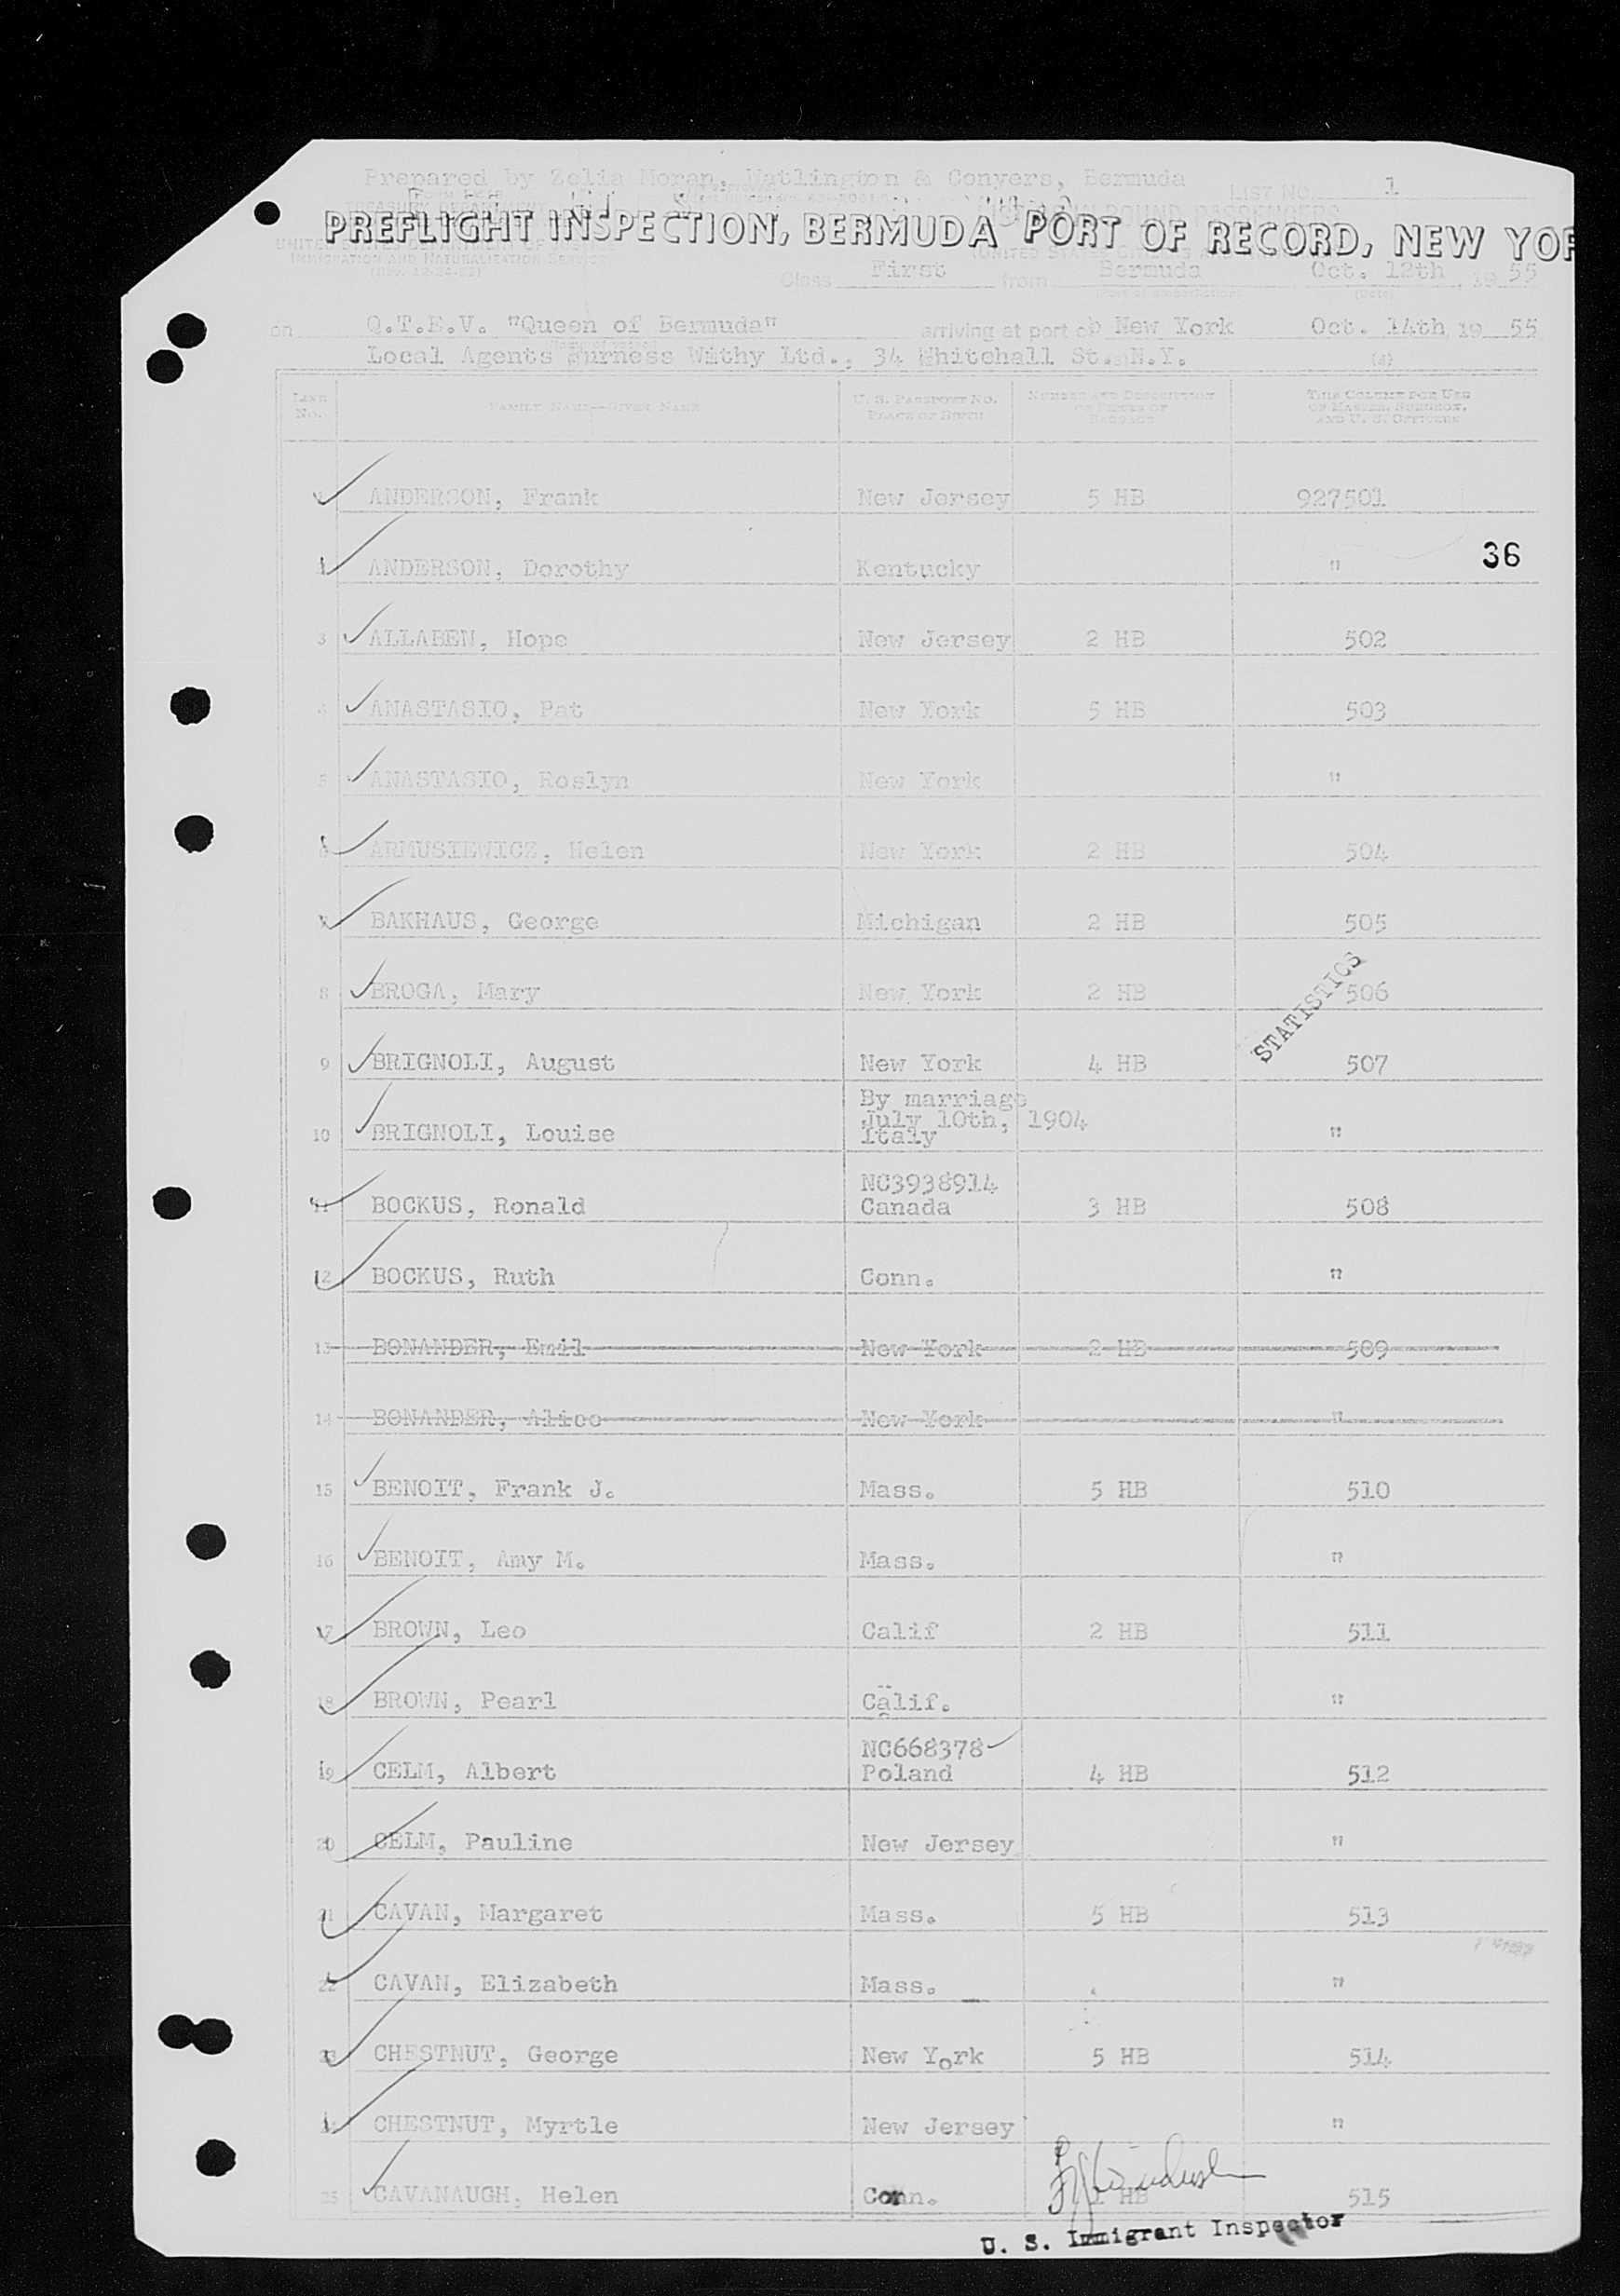 Prepared by Zelia Moran, Watlington & Conyers, Bermuda
LIST NO. 1
PREFLIGHT INSPECTION, BERMUDA PORT OF RECORD, NEW YOR
IMMIGRATION AND NATURALIZATION SERVICE
Class First from Bermuda Oct. 12th, 19 55
on Q.T.E.V. "Queen of Bermuda" arriving at port of New York Oct. 14th, 19 55
Local Agents Furness Withy Ltd., 34 Whitehall St. N.Y. (4)
LINE No. FAMILY NAME—GIVEN NAME U. S. PASSPORT NO. PLACE OF BIRTH NUMBER AND DESCRIPTION OF PIECES OF BAGGAGE THIS COLUMN FOR USE OF MASTER, SURGEON, AND U. S. OFFICERS
ANDERSON, Frank New Jersey 5 HB 927501
ANDERSON, Dorothy Kentucky " 36
3 ALLABEN, Hope New Jersey 2 HB 502
4 ANASTASIO, Pat New York 5 HB 503
5 ANASTASIO, Roslyn New York "
6 ARMUSIEWICZ, Helen New York 2 HB 504
BAKHAUS, George Michigan 2 HB 505
8 BROGA, Mary New York 2 HB 506
STATISTICS
9 BRIGNOLI, August New York 4 HB 507
By marriage
July 10th, 1904
10 BRIGNOLI, Louise Italy "
NC3938914
11 BOCKUS, Ronald Canada 3 HB 508
12 BOCKUS, Ruth Conn. "
13 BONANDER, Emil New York 2 HB 509
14 BONANDER, Alice New York "
15 BENOIT, Frank J. Mass. 5 HB 510
16 BENOIT, Amy M. Mass. "
17 BROWN, Leo Calif 2 HB 511
18 BROWN, Pearl Calif. "
NC668378
19 CELM, Albert Poland 4 HB 512
20 CELM, Pauline New Jersey "
21 CAVAN, Margaret Mass. 5 HB 513
22 CAVAN, Elizabeth Mass. "
23 CHESTNUT, George New York 5 HB 514
CHESTNUT, Myrtle New Jersey "
25 CAVANAUGH, Helen Conn. 1 HB 515
U. S. Immigrant Inspector